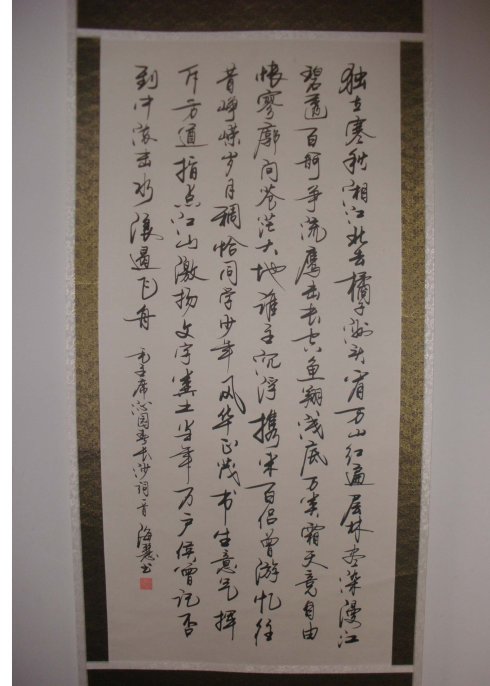 独立寒秋湘江北去橘子洲头看万山红遍层林尽染漫江
碧透百舸争流鹰击长空鱼翔浅底万类霜天竞自由
怅寥廓问苍茫大地谁主沉浮携来百侣曾游忆往
昔峥嵘岁月稠恰同学少年风华正茂书生意气挥
斥方遒指点江山激扬文字粪土当年万户侯曾记否
到中流击水浪遏飞舟
毛主席沁园春长沙词一首 海慧书